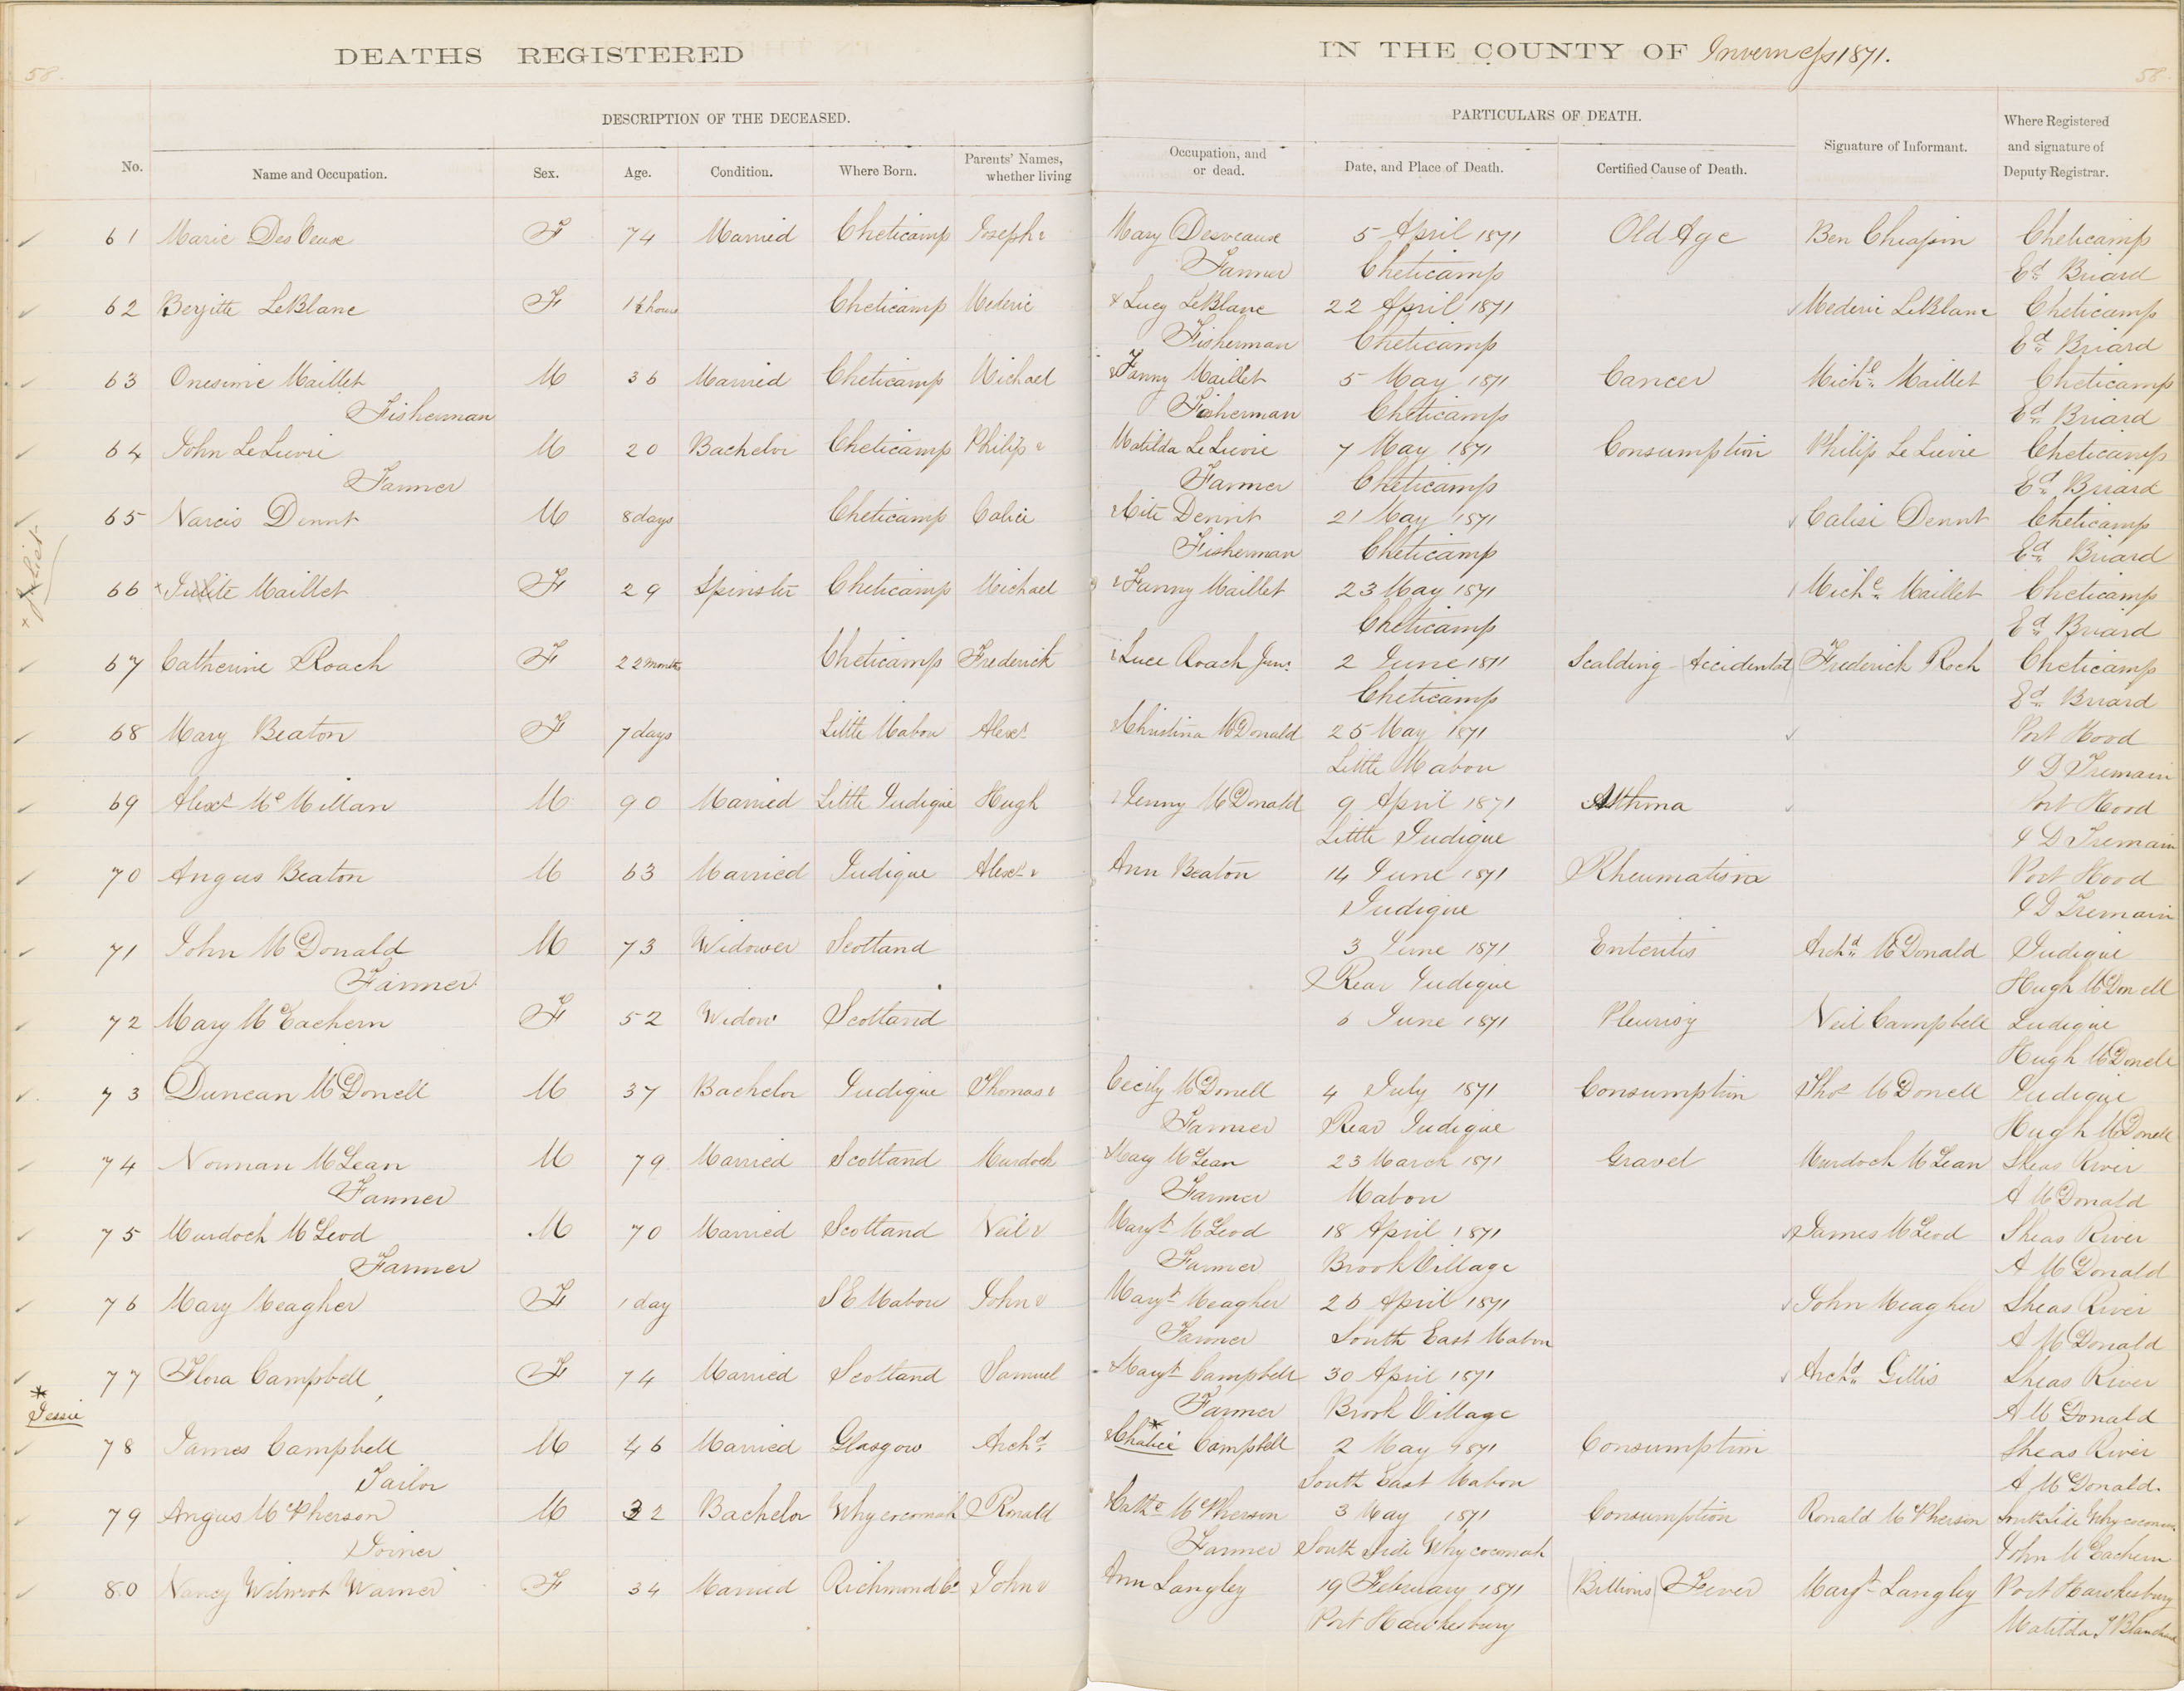 DEATHS REGISTERED IN THE COUNTY OF Inverness 1871.
58. 58.
DESCRIPTION OF THE DECEASED. PARTICULARS OF DEATH.
No. Name and Occupation. Sex. Age. Condition. Where Born. Parents' Names, whether living Occupation, and or dead. Date, and Place of Death. Certified Cause of Death. Signature of Informant. Where Registered and signature of Deputy Registrar.
61 Marie DesVeaux F 74 Married Cheticamp Joseph & Mary Desveaux 5 April 1871 Old Age Ben Chiasson Cheticamp
Farmer Cheticamp Ed. Briard
62 Berjitte LeBlanc F 1½ hours Cheticamp Mederic & Lucy LeBlanc 22 April 1871 Mederic LeBlanc Cheticamp
Fisherman Cheticamp Ed. Briard
63 Onesime Maillet M 36 Married Cheticamp Michael & Fanny Maillet 5 May 1871 Cancer Michl. Maillet Cheticamp
Fisherman Fisherman Cheticamp Ed. Briard
64 John LeLievre M 20 Bachelor Cheticamp Philip & Matilda LeLievre 7 May 1871 Consumption Philip LeLievre Cheticamp
Farmer Farmer Cheticamp Ed. Briard
65 Narcis M 8 days Cheticamp & 21 May 1871 Cheticamp
Fisherman Cheticamp Ed. Briard
66 x Maillet F 29 Spinster Cheticamp Michael & Fanny Maillet 23 May 1871 Michl. Maillet Cheticamp
Cheticamp Ed. Briard
67 Catherine Roach F 22 months Cheticamp Frederick & Luce Roach Junr. 2 June 1871 Scalding (Accidental) Frederick Roch Cheticamp
Cheticamp Ed. Briard
68 Mary Beaton F 7 days Little Mabou Alexr. & Christina McDonald 25 May 1871 Port Hood
Little Mabou D Tremain
69 Alexr. McMillan M 90 Married Little Judique Hugh & Jenny McDonald 9 April 1871 Asthma Port Hood
Little Judique D Tremain
70 Angus Beaton M 63 Married Judique Alexr. & Ann Beaton 14 June 1871 Rheumatism Port Hood
Judique D Tremain
71 John McDonald M 73 Widower Scotland 3 June 1871 Enteritis Archd. McDonald Judique
Farmer Rear Judique Hugh McDonell
72 Mary McEachern F 52 Widow Scotland 6 June 1871 Pleurisy Neil Campbell Judique
Hugh McDonell
73 Duncan McDonell M 37 Bachelor Judique Thomas & Cecily McDonell 4 July 1871 Consumption Thos McDonell Judique
Farmer Rear Judique Hugh McDonell
74 Norman McLean M 79 Married Scotland Murdoch & Mary McLean 23 March 1871 Gravel Murdoch McLean Sheas River
Farmer Farmer Mabou A McDonald
75 Murdoch McLeod M 70 Married Scotland Neil & Margt. McLeod 18 April 1871 James McLeod Sheas River
Farmer Farmer Brook Village A McDonald
76 Mary Meagher F 1 day S E Mabou John & Margt. Meagher 26 April 1871 John Meagher Sheas River
Farmer South East Mabou A McDonald
77 Flora Campbell F 74 Married Scotland Samuel & Margt. Campbell 30 April 1871 Archd. Gillis Sheas River
Farmer Brook Village A McDonald
* Jessie
78 James Campbell M 46 Married Glasgow Archd. & * Campbell 2 May 1871 Consumption Sheas River
Tailor South East Mabou A McDonald.
79 Angus McPherson M 32 Bachelor Whycocomah Ronald & Cathe. McPherson 3 May 1871 Consumption Ronald McPherson South Side Whycocomah
Joiner Farmer South Side Whycocomah John McEachern
80 Nancy Wilmot Warner F 34 Married Richmond Co. John & Ann Langley 19 February 1871 (Billious) Fever Margt. Langley Port Hawkesbury
Port Hawkesbury Matilda J Blanchard